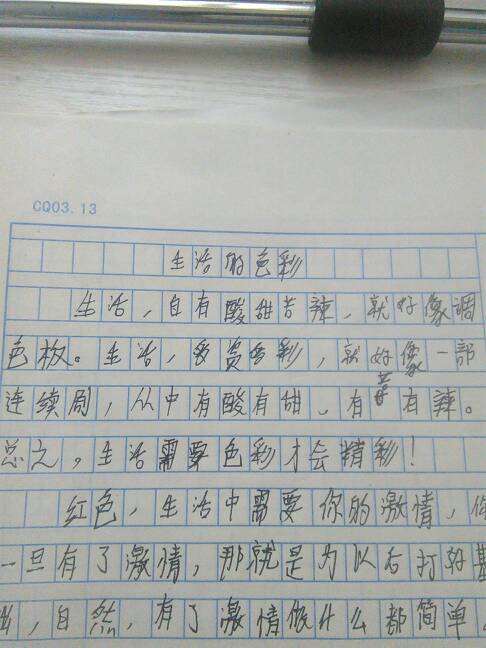 CQ03.13
生活的色彩
生活，自有酸甜苦辣，就好像调
色板。生活，多姿多彩，就好像一部
连续剧，从中有酸有甜、有苦有辣。
总之，生活需要色彩才会精彩！
红色，生活中需要你的激情，你
一旦有了激情，那就是为以后打好基
出，自然，有了激情做什么都简单